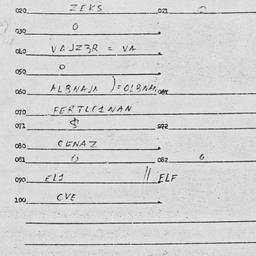 020 ZEKS 021 0
030 0
040 VAJZ3R = VA
050 0
060 ALBNAJA )=OLBNAA 061
070 FERTLC1NAN
071 072
080 CENAZ
081 0 082 0
090 EL1 // ELF
100 CVE